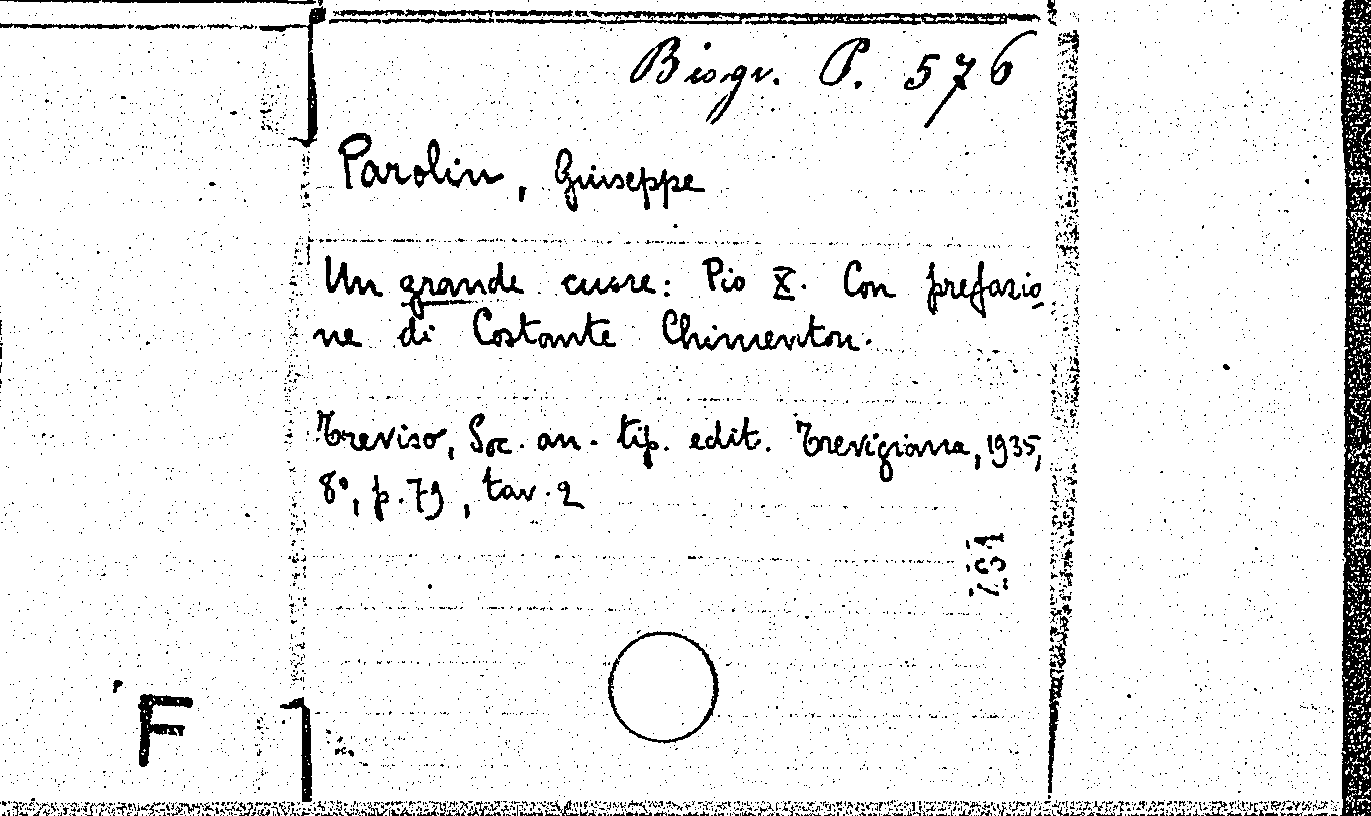 Biogr. P. 576
Parolin, Giuseppe
Un grande cuore: Pio X. Con prefazio-
ne di Costante Chimenton.
Treviso, Soc. an. tip. edit. Trevigiana, 1935,
8°, p. 79, tav. 2
F